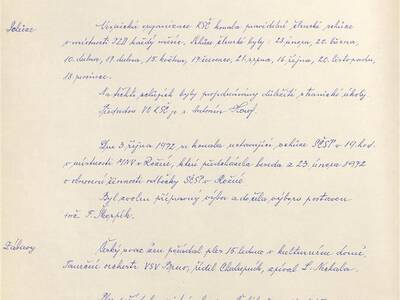 Schůze
Vesnická organizace KSČ konala pravidelně členské schůze
v místnosti JZD každý měsíc. Schůze členské byly: 25. února, 22. března,
10. dubna, 19. dubna, 15. května, 17. července, 21. srpna, 16. října, 20. listopadu,
18. prosince.
Na těchto schůzích byly projednávány důležité stranické úkoly
Předsedou VO KSČ je s. Antonín
Dne 3. října 1972 se konala ustavující schůze SČSP v 19 hod.
v místnosti MNV v Rozné, které předcházela beseda z 23. února 1972
o obnovení činnosti odbočky SČSP v Rozné
Byl zvolen přípravný výbor a do čela výboru postaven
F.
Zábavy
Český svaz žen pořádal ples 15. ledna v kulturním domě,
Taneční orchestr VSV Brno, řídil Chudepuch, zpíval L. Michala.